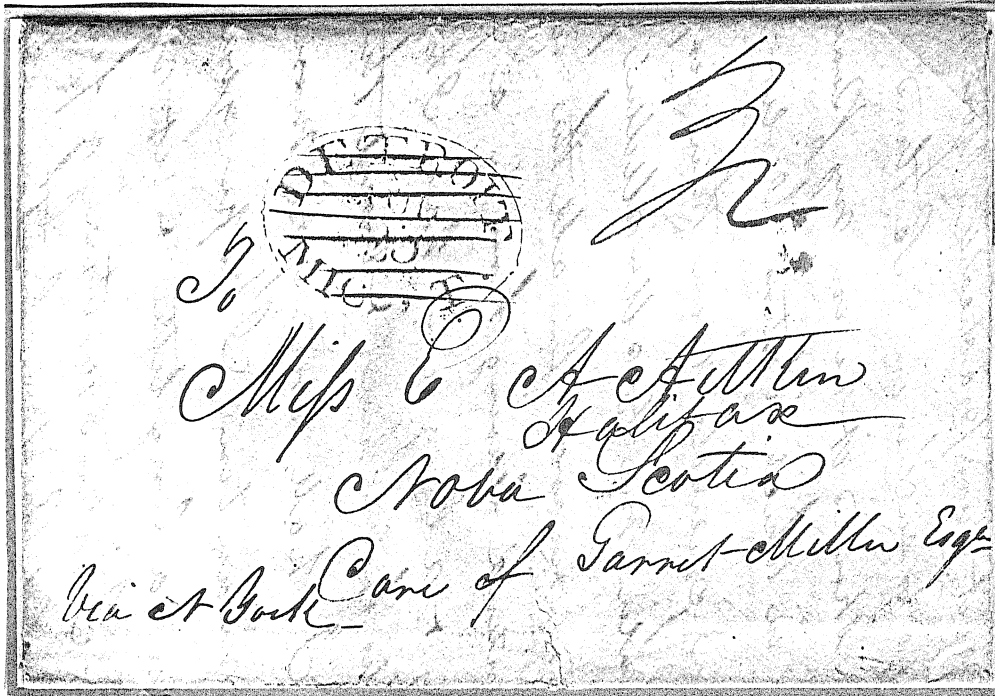 DETROIT
JUL
25
MICH. T.
To
Miss E A Aitken
Halifax
Nova Scotia
Care of Garret Miller Esqr
Via N York